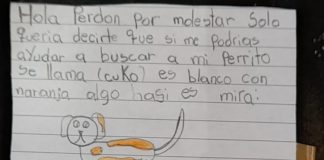 Hola Perdon Por molestar Solo
queria decirte que si me Podrias
aYudar a buscar a mi Perrito
Se llama (cuKo) es blanco con
naranja algo hasi es mira: